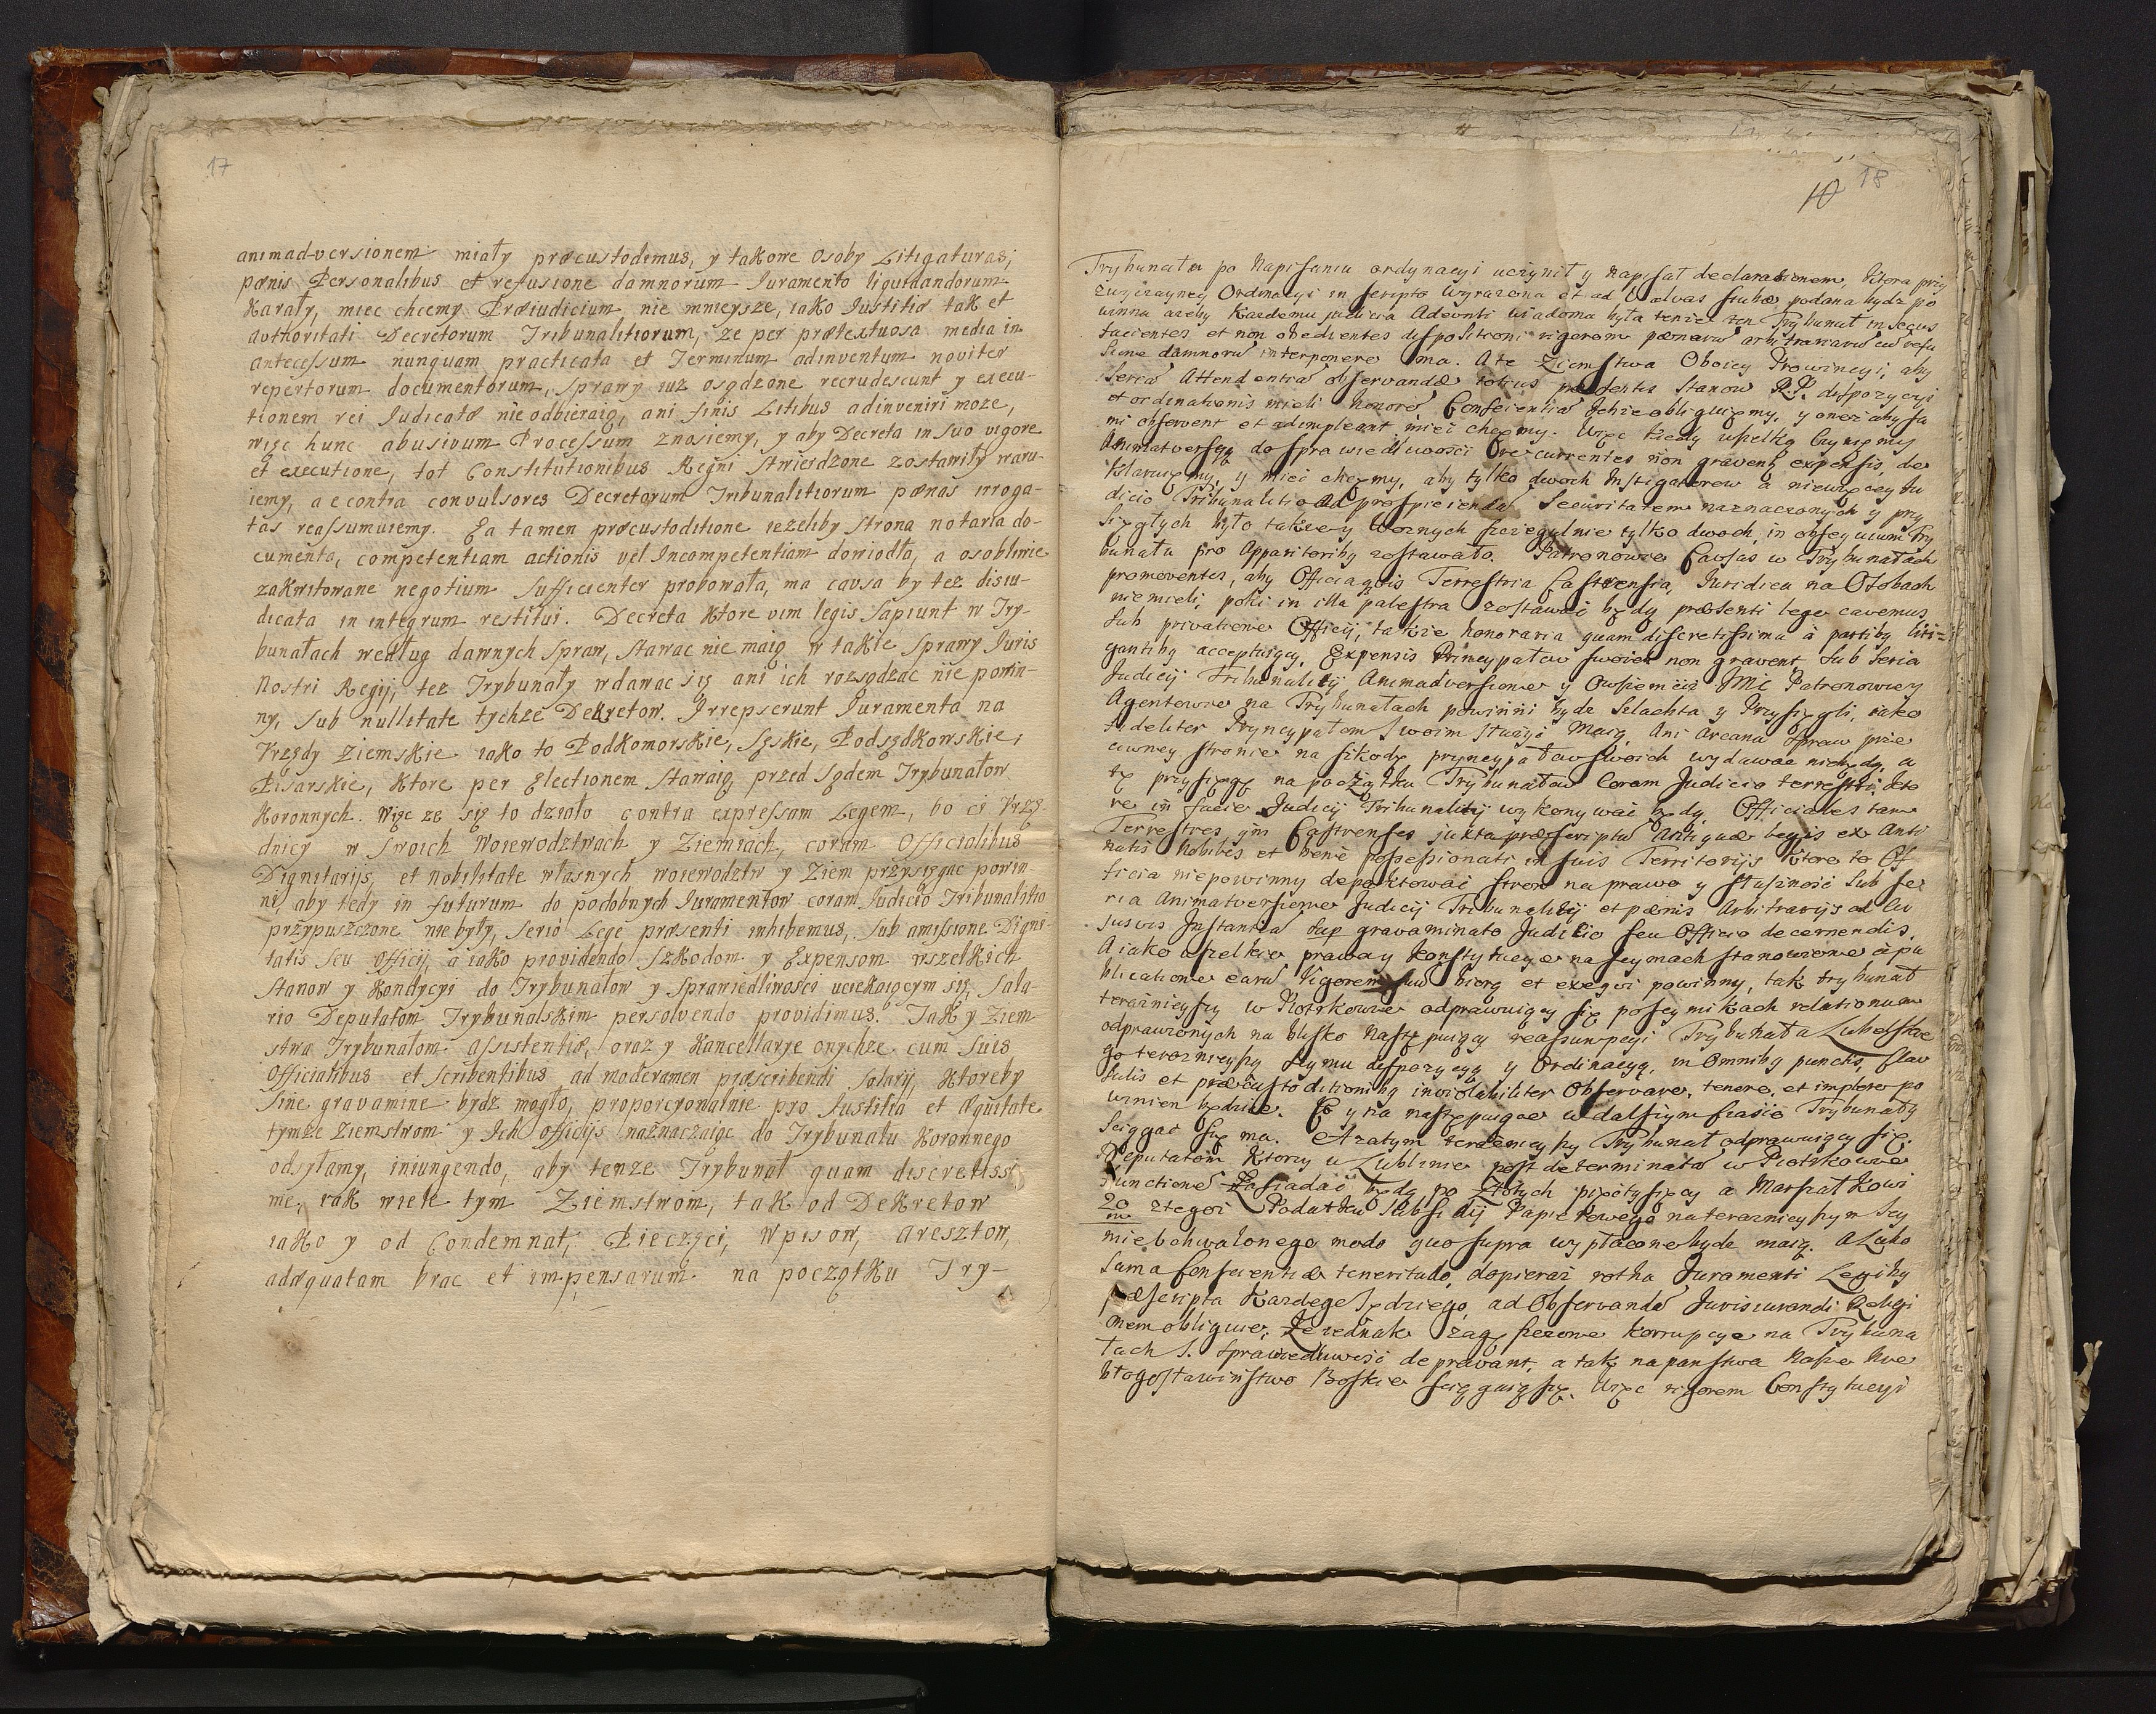 17
animadversionem miały præcustodimus, y takowe Osoby Litigaturas,
pœnis Personalibus et refusione damnorum Iuramento liquidandorum
karały, miec chcemy Præiudicium nie mnieysze, iako Iustitiæ tak et
Authoritati Decretorum Tribunalitiorum, ze per prætextuosa media in
antecessum nunquam practicata et Terminum adinventum noviter
repertorum documentorum, sprawy iuz osądzone recrudescunt y execu-
tionem rei Iudicatæ nie odbieraią, ani finis Litibus adinveniri moze,
więc hunc abusivum Processum znosiemy, y aby Decreta in suo vigore
et executione, tot Constitutionibus Regni stwierdzone zostawiły waru-
iemy, a e contra convulsores Decretorum Tribunalitiorum pœnas irroga-
tas reassumuiemy. Ea tamen præcustoditione iezeliby strona notaria do-
cumenta, competentiam actionis vel Incompetentiam dowiodło, a osobliwie
zakwitowane negotium sufficienter probowała, ma causa by tez disiu-
dicata in integrum restitui. Decreta ktore vim legis sapiunt w Try-
bunałach według dawnych spraw, stawac nie maią w takie sprawy Iuris
Nostri Regij, tez Trybunały wdawac się ani ich rozsądzac nie powin-
ny, sub nullitate tychze Dekretow. Irrepserunt Iuramenta na
Vrzędy Ziemskie iako to Podkomorskie, Sęskie, Podsędkowskie,
Pisarskie, ktore per Electionem stawaią, przed Sądem Trybunałow
Koronnych. Więc ze się to działo contra expressam Legem, bo ci Vrzę-
dnicy w swoich Woiewodztwach y Ziemiach, coram Officialibus
Dignitarijs, et nobilitate własnych woiewodztw y Ziem przysięgac powin
ni, aby tedy in futurum do podobnych Iuramentow coram Iudicio Tribunalitio
przypuszczone nie były, serio Lege præsenti inhibemus, sub amissione Digni-
tatis seu Officij, a iako providendo Szkodom y Expensom wszelkich
Stanow y Kondycyi do Trybunałow y Sprawiedliwosci uciekaiącym się, Sala-
rio Deputatom Trybunalskim persolvendo providimus. Tak y Ziem
stwa Trybunałom assistentiæ, oraz y Kancellarye onychze cum suis
Officialibus et scribentibus ad moderamen præscribendi salarij, ktoreby
sine gravamine bydz mogło, proporcyonalnie pro Iustitia et Æquitate
tymze Ziemstwom y Ich Officijs naznaczaiąc do Trybunału Koronnego
odsyłamy, iniungendo, aby tenze Trybunał quam discretissi
me, iak wiele tym Ziemstwom, tak od Dekretow
iako y od Condemnat, Pieczęci, Wpisow, Aresztow,
adæquatam brac et impensarum na początku Try-
18
10
Trybunału po Napisaniu ordynacyi uczynił y napisał declarationem, ktora przy
zwyczayney Ordinacyi in scripto wyrazona et ad Valvas Izbæ podana bydz po
winna azeby kazdemu judicia Adeunti wiadoma była tenze ten Trybunał in secus
facientes et non obedientes dispositioni rigorem pœnarũ arbitrariarũ cũ refu
sione damnorũ interponere ma. A te Ziemstwa Oboiey Prowincyi, aby
seriã Attendentiã observandæ totius prædentis Stanow RP. dispozycyi
et ordinationis mieli honore, Conscientiã Ichze obliguiemy, y onez aby sa
mi observent et adimpleant miec chcemy. Więc kiedy wszelką czyniemy
Animatversyą do sprawiedliwości Orecurrentes non gravent expensis, de
klaruiemy, y mieć chcemy, aby tylko dwoch Instigatorow a niewięcey Iu
dicio Tribunalitio ad prospiciendã Securitatem naznaczonych y przy
sięgłych było takze y woznych szczegulnie tylko dwoch, in obsequium Try
bunału pro Apparitoribq zostawało. Patronowie Causas w Trybunałach
promoventes, aby Officia quis Terrestria Castrensia, Iuridica na Osobach
niemieli, poki in illa palestra zostawać będą præsenti lege cavemus,
sub privatione Officij, takze honoraria quam discretissima à partibq liti=
gantibq acceptuiący, Expensis Pryncypałow swoich non gravent sub seria
Judicij Tribunalitij Animadversione y Owszem ciz JMć Patronowie y
Agentowie na Trybunałach powinni bydz Szlachta y Przysięgli, iako
fideliter Pryncypałom swoim stwązi Maią, Ani Arcana spraw prze
ciwney stronie na szkodę pryncypałow swoich wydawac niebędą, a
tę przysięgę na początku Trybunałow Coram Judicio terrestri, kto
re in facie Judicij Tribunalitij wykonywać będą. Officiales tam
Terrestres qm̃ Castrenses juxta præscriptũ Antiquæ legis ex Anti
natis Nobiles et bene possessionati in suis Territorijs ktore to Of
ficia niepowinny depaktować stron na prawo y słuszność sub se
ria Animatversione Judicij Tribunalitij et pœnis Arbitrarijs ad cu
jusvis Instantiã sup gravaminato Judicio seu Officio decernendis.
A iako wszelkie prawa y konstytucye na seymach stanowione à pu
blicatione earũ Vigorem suũ biorą et exequi powinny, tak trybunał
teraznieyszy w Piotrkowie odprawuiący się po seymikach relationum
odprawionych na blisko następuiącey reassumpcyi Trybunału Lubelskie
go teraznieyszą Seymu dispozycyą y Ordinacyą, in Omnibq punctis, clau
sulis et præcustoditionibq inviolabiliter Observare, tenere, et implere po
winien będzie. Co y na następuiące w dalszym czasie Trybunały
sciągać się ma. A zatym teraznieyszy Trybunał odprawuiący się.
Deputatom ktorzy w Lublinie post determinatã w Piotrkowie
functionẽ Zasiadać będą po Złotych pięćtysięcy a Marszałkowi
20 m ztegoz Podatku Subsidij Papierowego na teraznieyszym Sey
mie uchwalonego modo quo supra wypłacone bydz maią. A lubo
sama Conscientiæ teneritudo, dopieraz rotha Juramenti Legibq
præscripta kazdego Sędziego, ad Observandã Jurisiurandi Religi
onem obliguie, Ze iednak zagęszczone korrupcye na Trybuna
łach S. Sprawiedliwość depravant, a tak na panstwa Nasze Nie
błogosławiństwo Boskie sciąguią się. Więc rigorem Constytucyi